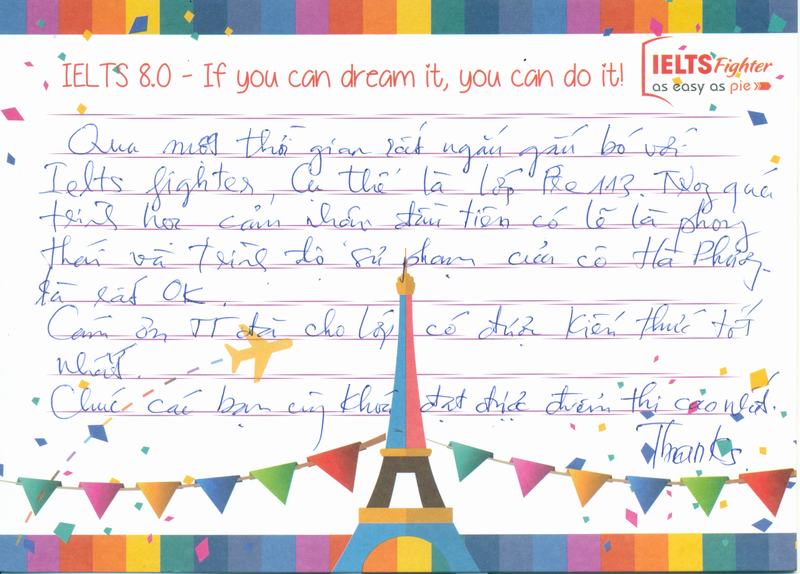 IELTS 8.0 - If you can dream it, you can do it!
IELTS Fighter
as easy as pie
Qua một thời gian rất ngắn gắn bó với
Ielts fighter, Cụ thể là lớp Pre 113. Trong quá
trình học cảm nhận đầu tiên có lẽ là phong
thái và trình độ sư phạm của cô Hà Phương
là rất OK.
Cảm ơn TT đã cho lớp có được kiến thức tốt
nhất.
Chúc các bạn cùng khoá đạt được điểm thi cao nhất.
Thanks